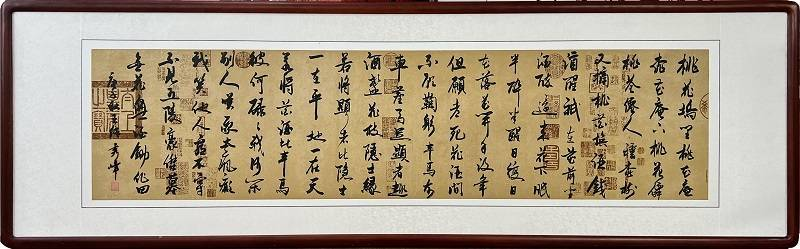 桃花塢里桃花庵
桃花庵下桃花仙
桃花仙人種桃樹
又摘桃花換酒錢
酒醒祇在花前坐
酒醉還來花下眠
半醉半醒日復日
花落花開年復年
但願老死花酒間
不願鞠躬車馬前
車塵馬足顯者趣
酒盞花枝隱士緣
若將顯者比隱士
一在平地一在天
若將花酒比車馬
彼何碌碌我何閑
別人笑我太風癲
我笑他人看不穿
不見五陵豪傑墓
無花無酒鋤作田